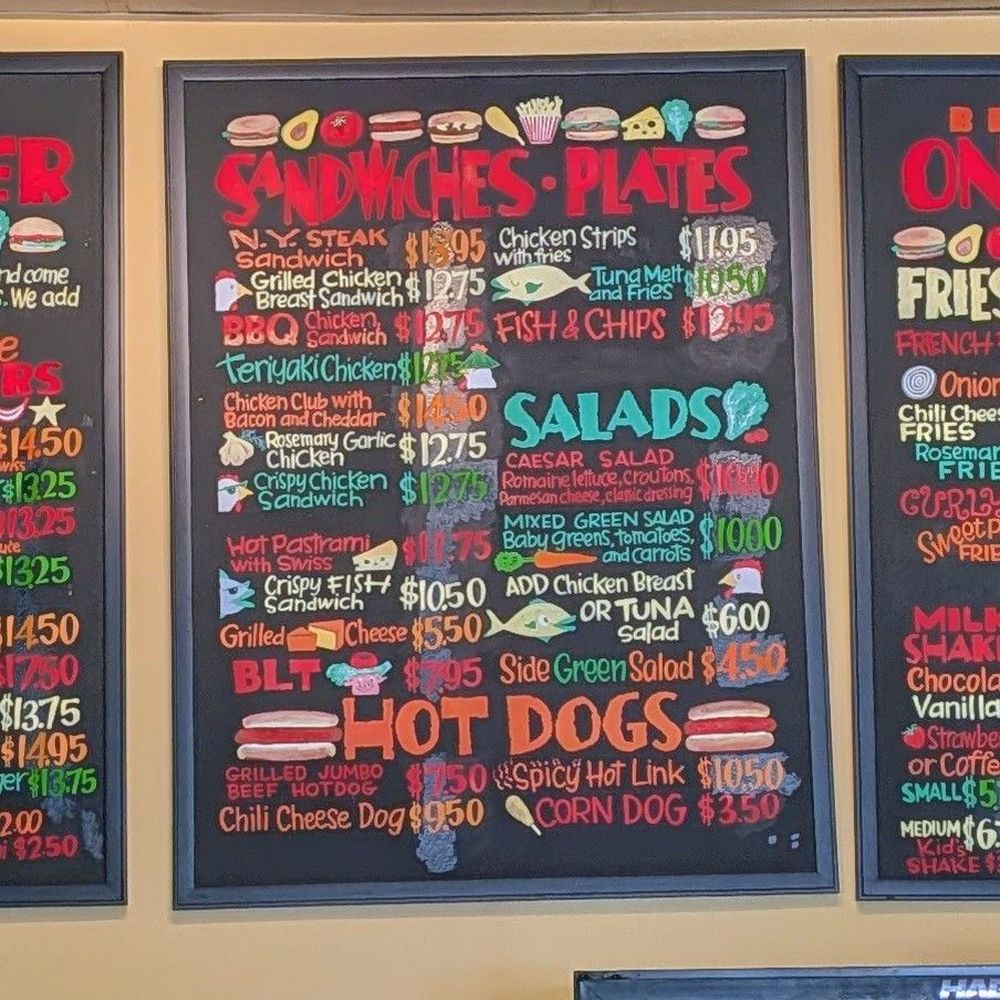 ER
nd come
s. We add
e
RS
$14.50
wiss
$13.25
$13.25
$13.25
$14.50
$17.50
$13.75
$14.95
ger $13.75
2.00
$2.50
SANDWICHES · PLATES
N.Y. STEAK
Sandwich
Grilled Chicken $12.75
Breast Sandwich
BBQ Chicken Sandwich $12.75
Teriyaki Chicken
Chicken Club with
Bacon and Cheddar
Rosemary Garlic $12.75
Chicken
Crispy Chicken $12.75
Sandwich
Hot Pastrami $11.75
with Swiss
Crispy FISH $10.50
Sandwich
Grilled Cheese $5.50
BLT $7.95
Chicken Strips $11.95
with fries
Tuna Melt $10.50
and Fries
FISH & CHIPS $12.95
SALADS
CAESAR SALAD
Romaine lettuce, croutons,
Parmesan cheese, classic dressing
MIXED GREEN SALAD $10.00
Baby greens, tomatoes,
and carrots
ADD Chicken Breast
OR TUNA $6.00
Salad
Side Green Salad $4.50
HOT DOGS
GRILLED JUMBO $7.50
BEEF HOTDOG
Chili Cheese Dog $9.50
Spicy Hot Link $10.50
CORN DOG $3.50
ON
FRIES
FRENCH
Onion
Chili Chees
FRIES
Rosemar
FRIE
CURLY
Sweet P
FRIE
MILK
SHAK
Chocola
Vanilla
Strawbe
or Coffe
SMALL $5
MEDIUM $6
Kid's
SHAKE $